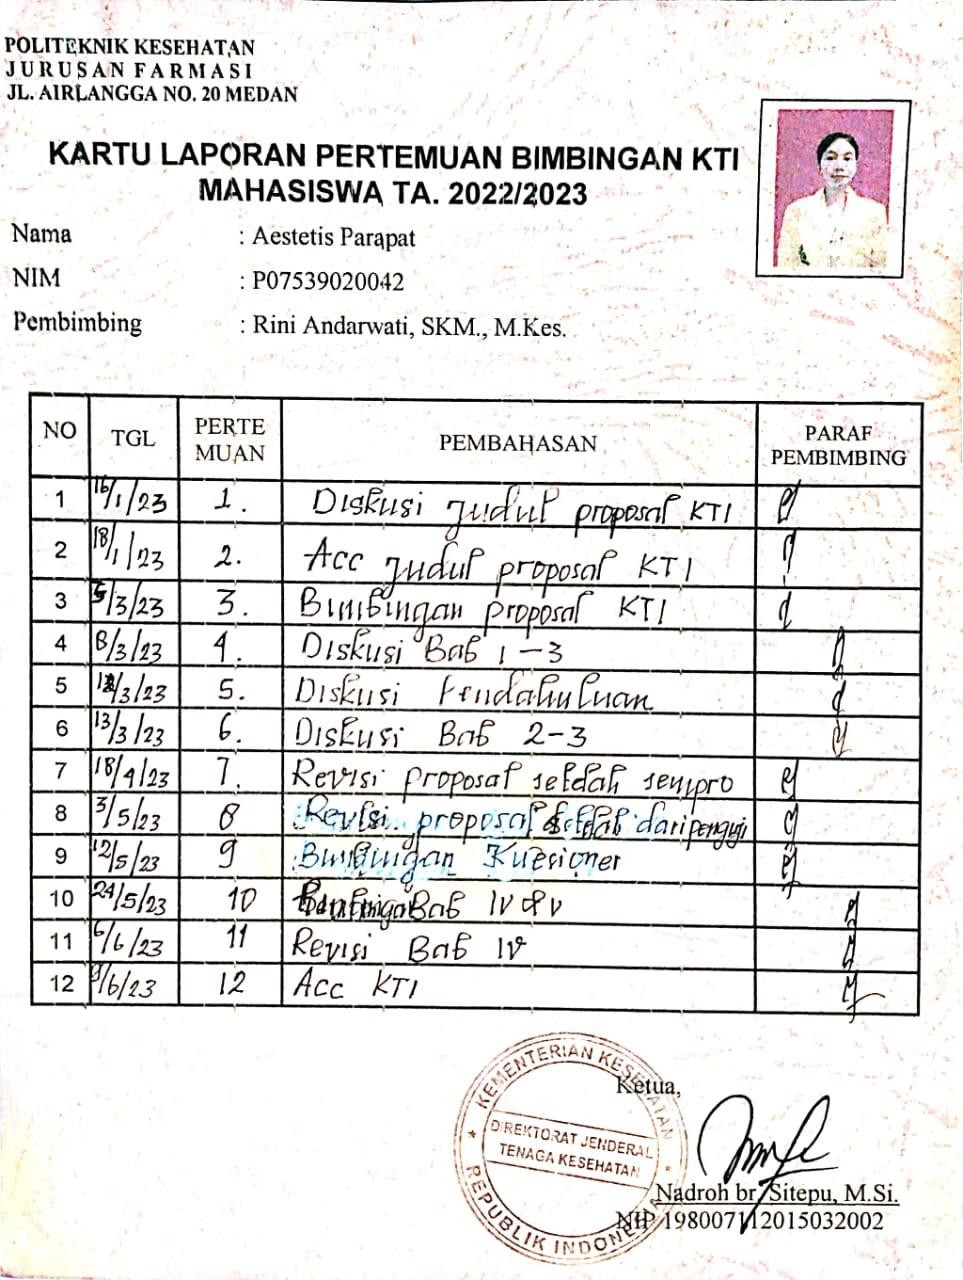 POLITEKNIK KESEHATAN
JURUSAN FARMASI
JL. AIRLANGGA NO. 20 MEDAN
KARTU LAPORAN PERTEMUAN BIMBINGAN KTI
MAHASISWA TA. 2022/2023
Nama : Aestetis Parapat
NIM : P07539020042
Pembimbing : Rini Andarwati, SKM., M.Kes.
NO TGL PERTE MUAN PEMBAHASAN PARAF PEMBIMBING
1 16/1/23 1. Diskusi judul proposal KTI
2 18/1/23 2. Acc judul proposal KTI
3 5/3/23 3. Bimbingan proposal KTI
4 8/3/23 4. Diskusi Bab 1-3
5 /3/23 5. Diskusi Pendahuluan
6 13/3/23 6. Diskusi Bab 2-3
7 18/4/23 7. Revisi proposal setelah sempro
8 3/5/23 8 Revisi proposal dari penguji
9 12/5/23 9 Bimbingan Kuesioner
10 24/5/23 10 Bab IV & V
11 6/6/23 11 Revisi Bab IV
12 /6/23 12 Acc KTI
KEMENTERIAN KESEHATAN
DIREKTORAT JENDERAL
TENAGA KESEHATAN
REPUBLIK INDONESIA
Ketua,
Nadroh br. Sitepu, M.Si.
NIP 198007112015032002